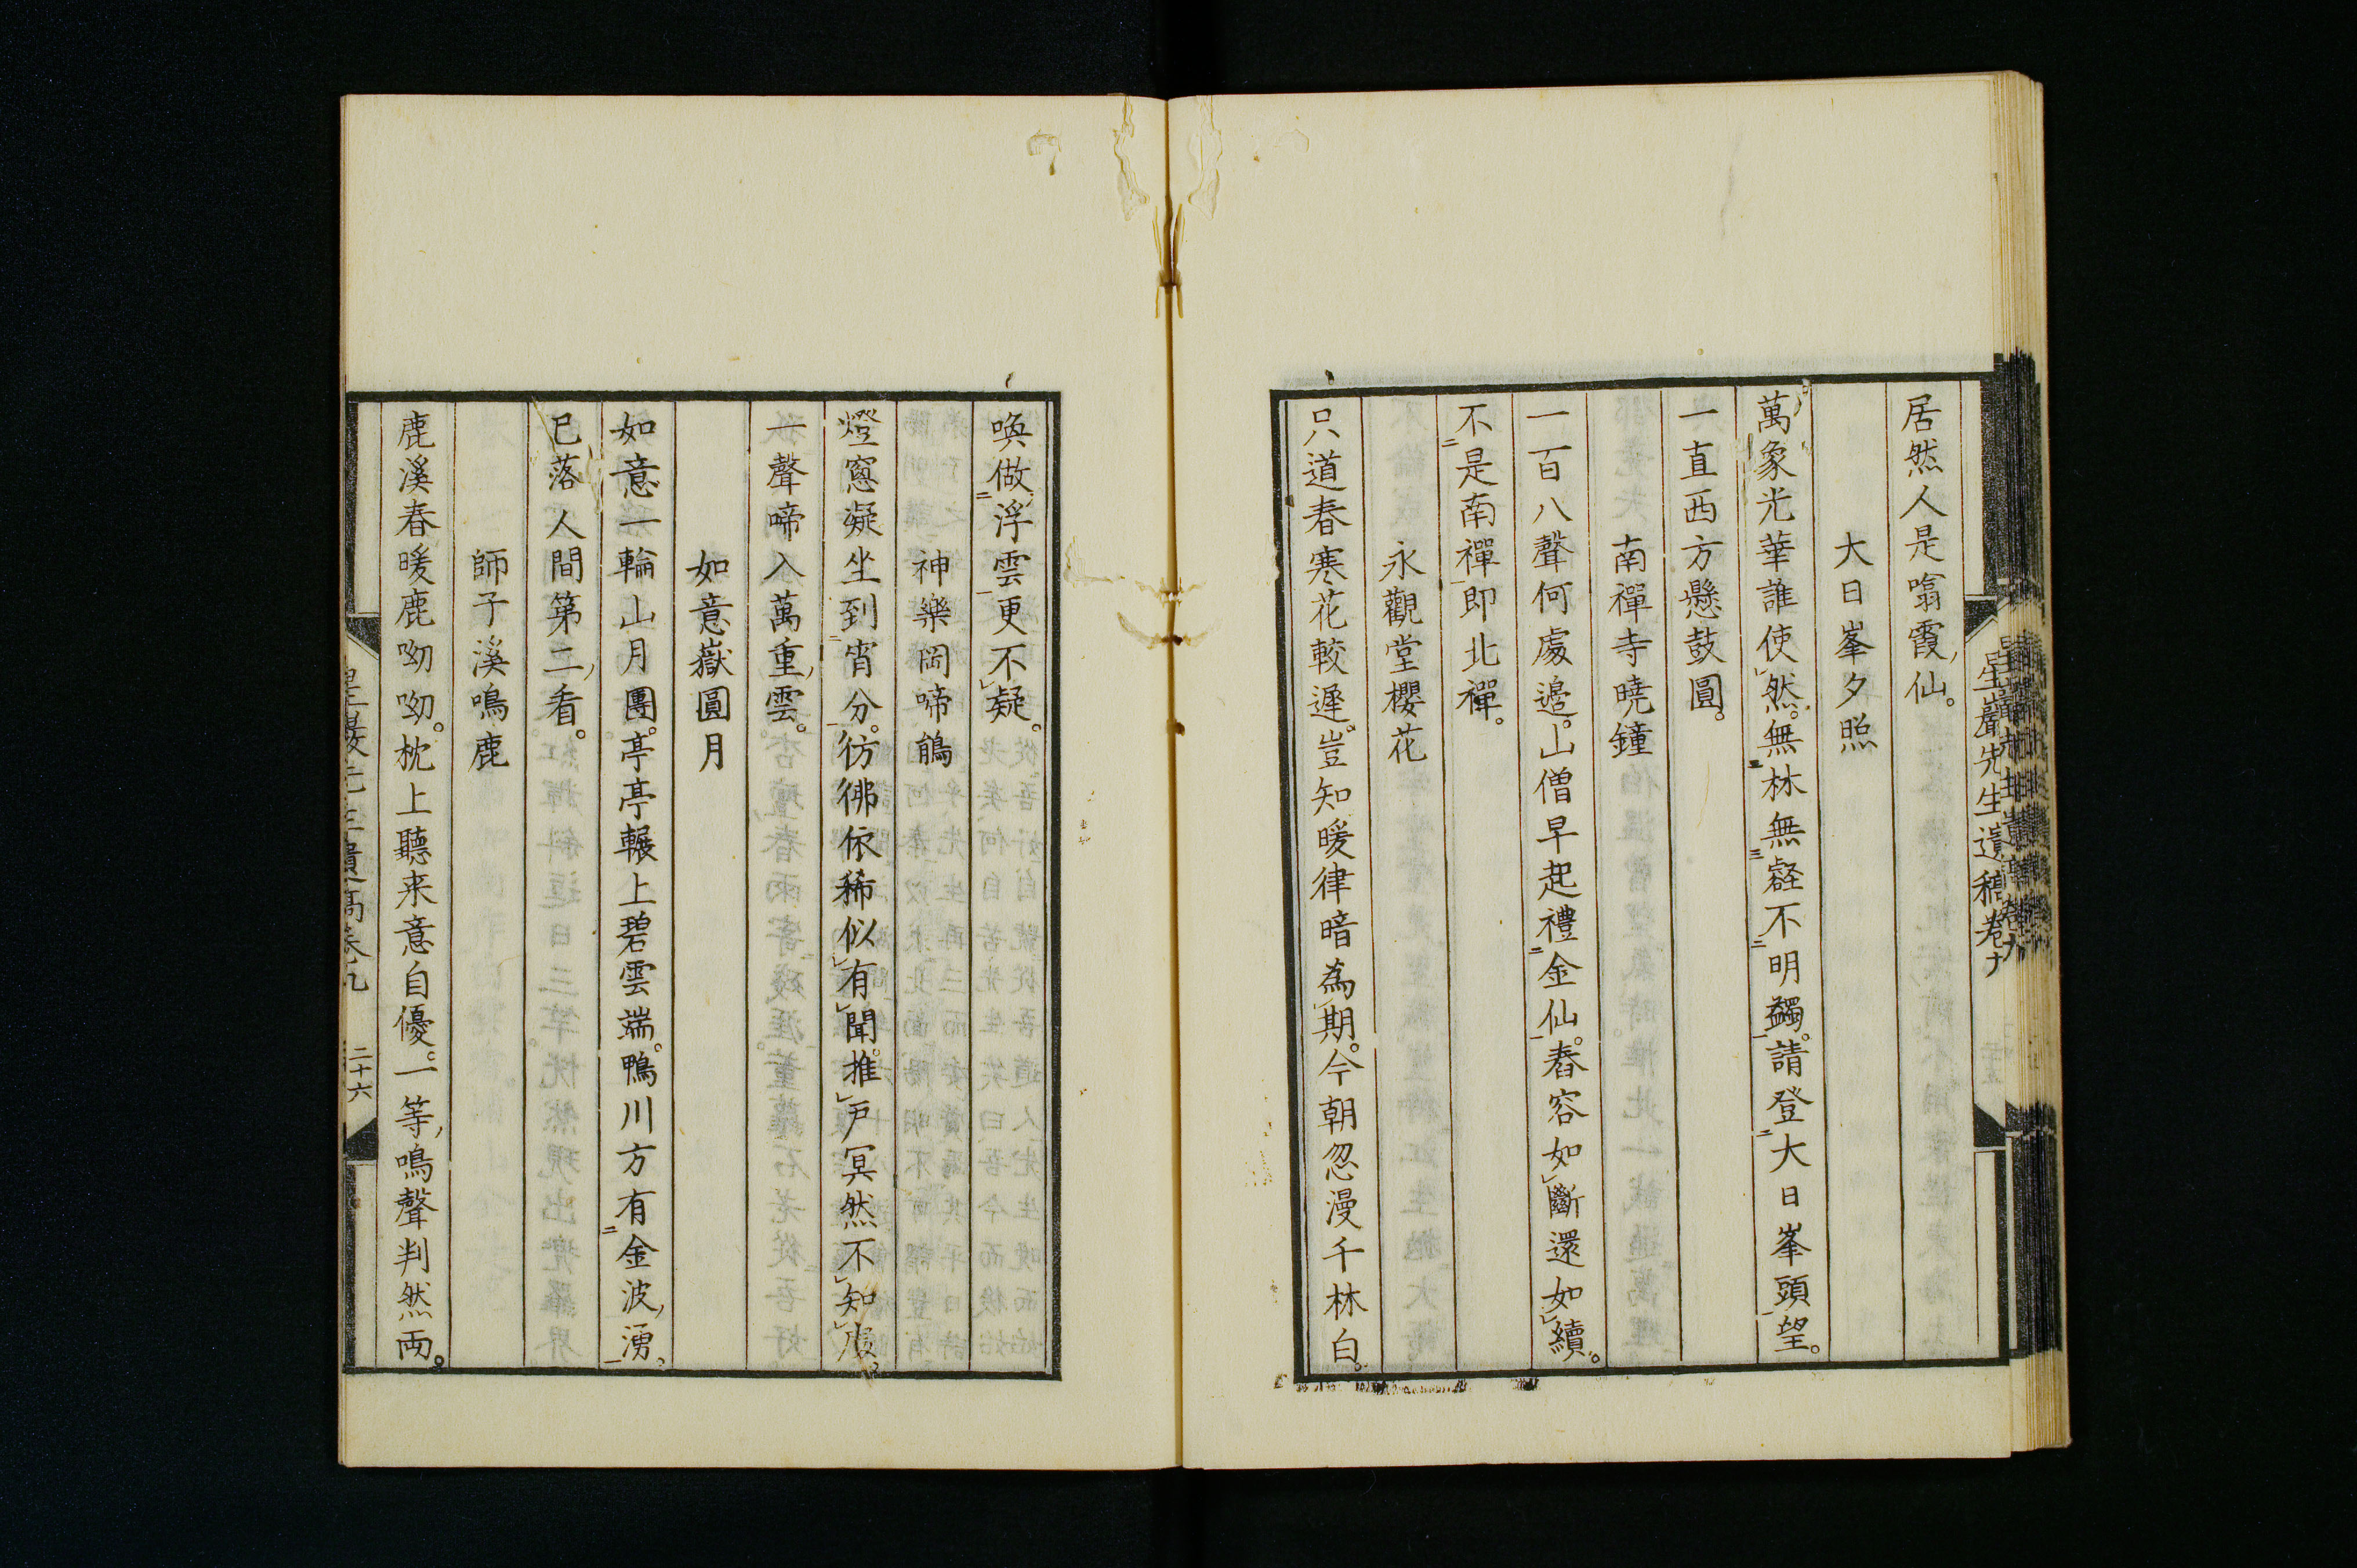 居然人是噏霞仙。
大日峯夕照
萬象光華誰使然。無林無壑不明蠲。請登大日峯頭望。
一直西方懸鼓圓。
南禪寺曉鐘
一百八聲何處邊。山僧早起禮金仙。舂容如斷還如續。
不是南禪即北禪。
永觀堂櫻花
只道春寒花較遲。豈知暖律暗為期。今朝忽漫千林白。
喚做浮雲更不疑。
神樂岡啼鵑
燈窓凝坐到宵分。彷彿依稀似有聞。推戶冥然不知處。
一聲啼入萬重雲。
如意嶽圓月
如意一輪山月團。亭亭輾上碧雲端。鴨川方有金波湧。
已落人間第二看。
師子溪鳴鹿
鹿溪春暖鹿呦呦。枕上聽来意自優。一等鳴聲判然兩。
二十六